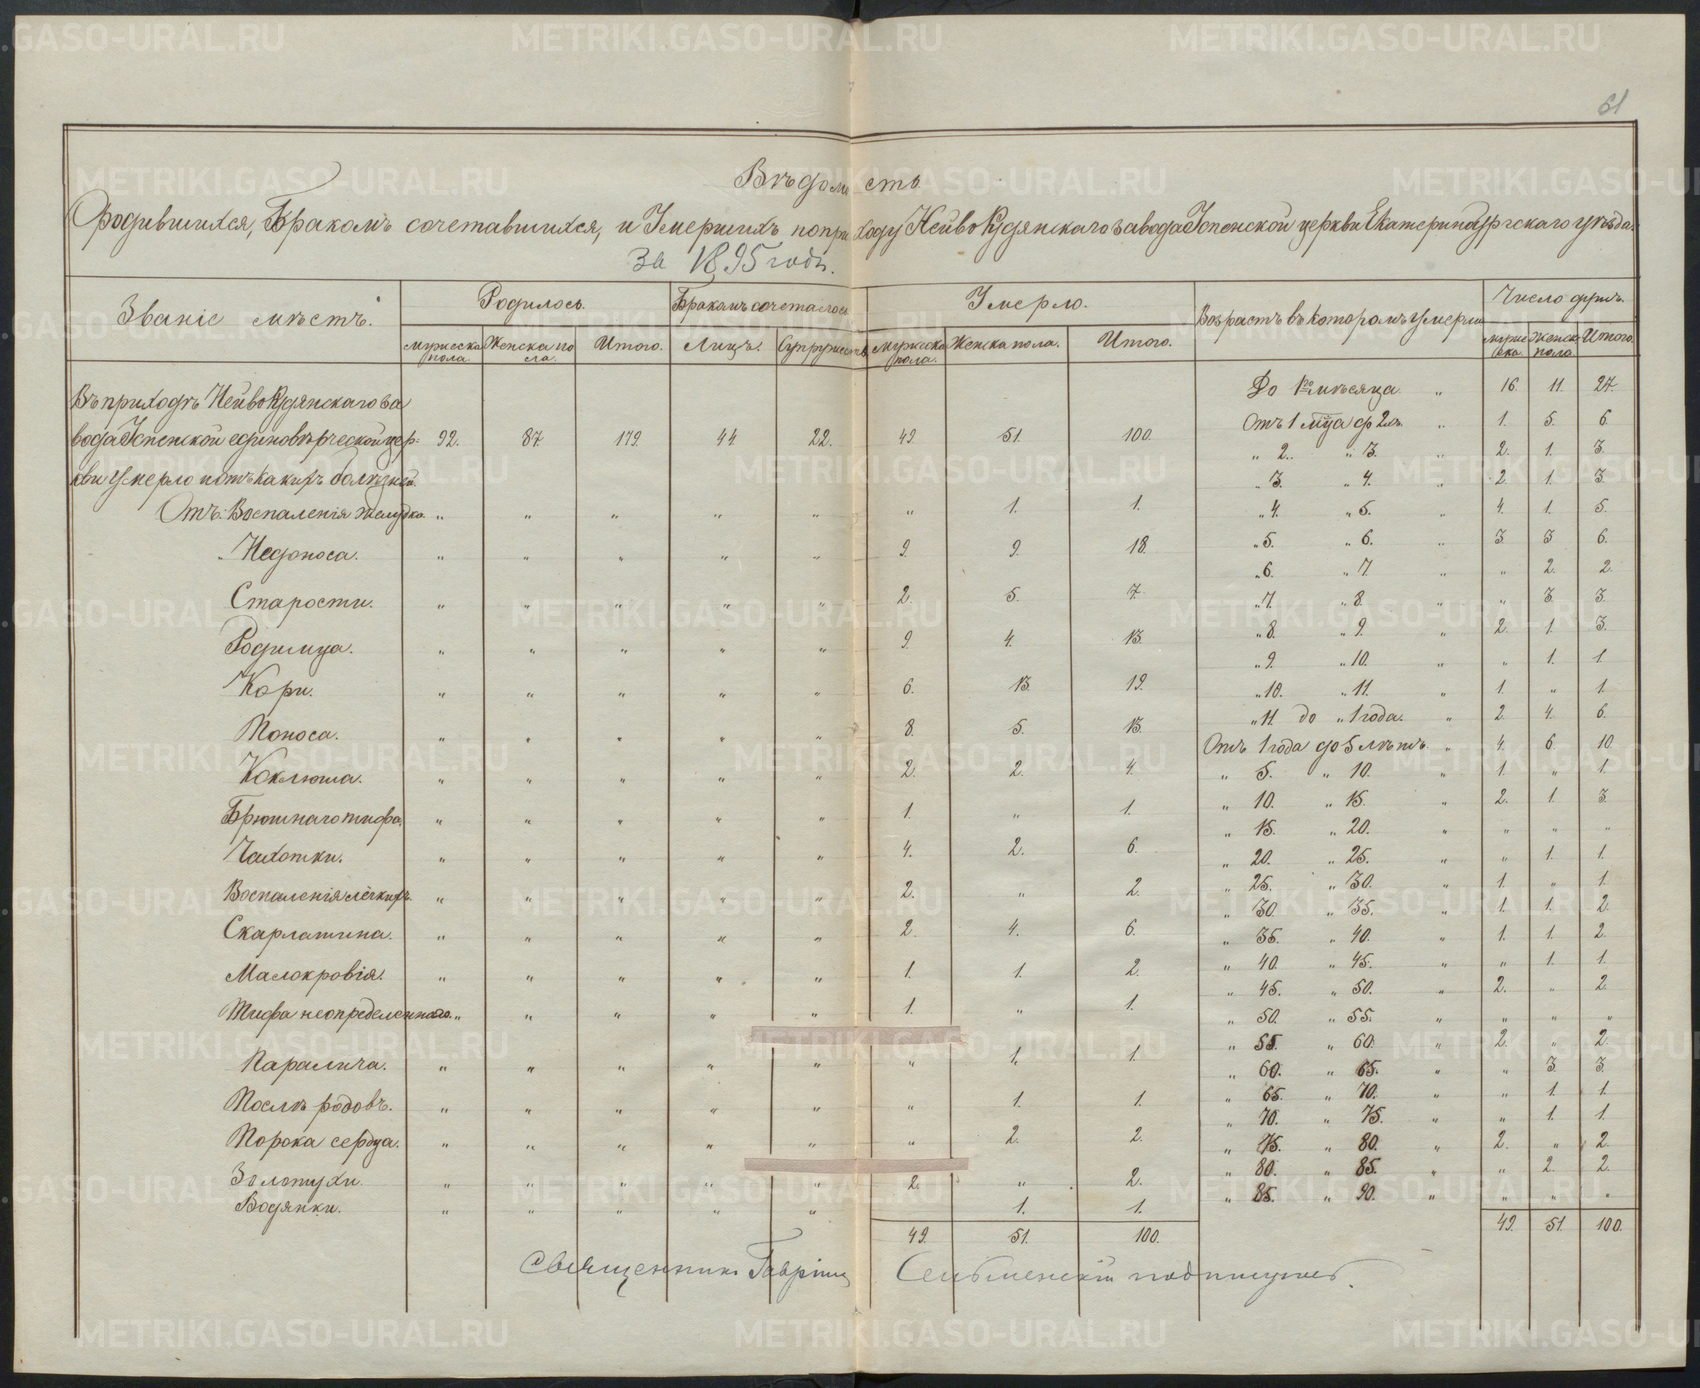 61
Вѣдомость
Родившихся, Бракомъ сочетавшихся, и Умершихъ по приходу Нейво Рудянскаго завода Успенской церкви Екатеринбургскаго уѣзда
За 1895 годъ.
Званіе мѣстъ. Родилось. Бракомъ сочеталось Умерло. Возрастъ въ которомъ умерли Число душъ.
мужеска пола. Женска пола. Итого. Лицъ. Супружествъ мужеска пола. Женска пола. Итого. мужеска Женска пола Итого
Въ приходѣ Нейво Рудянскаго за
вода Успенской единовѣрческой цер- 92. 87. 179. 44 22. 49. 51. 100.
кви умерло и отъ какихъ болѣзней
Отъ: Воспаленія желудка. „ „ „ „ „ „ 1. 1.
„ Недоноса. „ „ „ „ „ 9. 9. 18.
Старости. „ „ „ „ „ 2. 5. 7.
Родимца. „ „ „ „ „ 9. 4. 13.
Кори. „ „ „ „ „ 6. 13. 19.
Поноса. „ „ „ „ „ 8. 5. 13.
Коклюша. „ „ „ „ „ 2. 2. 4.
Брюшнаго тифа. „ „ „ „ „ 1. „ 1.
Чахотки. „ „ „ „ „ 4. 2. 6.
Воспаленія лёгкихъ. „ „ „ „ „ 2. „ 2.
Скарлатина. „ „ „ „ „ 2. 4. 6.
Малокровія. „ „ „ „ „ 1. 1. 2.
Тифа неопределеннаго. „ „ „ „ „ 1. „ 1.
Паралича. „ „ „ „ „ „ 1. 1.
Послѣ родовъ. „ „ „ „ „ „ 1. 1.
Порока сердца. „ „ „ „ „ „ 2. 2.
Золотухи. „ „ „ „ „ 2. „ 2.
Водянки. „ „ „ „ „ 1. 1.
49. 51. 100.
До 1го мѣсяца. „ 16 11. 27.
Отъ 1 мца до 2хъ. „ 1. 5. 6.
„ 2. „ 3. „ 2. 1. 3.
„ 3. „ 4. „ 2 1. 3.
„ 4. „ 5. „ 4. 1. 5.
„ 5. „ 6. „ 3. 3 6.
„ 6. „ 7. „ „ 2. 2.
„ 7. „ 8. „ „ 3. 3.
„ 8. „ 9. „ 2. 1. 3.
„ 9. „ 10. „ „ 1. 1.
„ 10. „ 11. „ 1. „ 1.
„ 11. до „ 1 года. „ 2. 4. 6.
Отъ 1 года до 5 лѣтъ. „ 4. 6. 10.
„ 5. „ 10. „ 1. „ 1.
„ 10. „ 15. „ 2. 1. 3.
„ 15. „ 20. „ „ „ „
„ 20. „ 25. „ „ 1. 1.
„ 25. „ 30. „ 1. „ 1.
„ 30. „ 35. „ 1. 1. 2.
„ 35. „ 40. „ 1. 1. 2.
„ 40. „ 45. „ „ 1. 1.
„ 45. „ 50. „ 2. „ 2.
„ 50. „ 55. „ „ „ „
„ 55. „ 60. „ 2. „ 2.
„ 60. „ 65. „ „ 3. 3.
„ 65. „ 70. „ „ 1. 1.
„ 70. „ 75. „ „ 1. 1.
„ 75. „ 80. „ 2. „ 2.
„ 80. „ 85. „ „ 2. 2.
„ 85. „ 90. „ „ „ „
49. 51. 100.
Священникъ Гавріилъ подписуюсь.
METRIKI.GASO-URAL.RU